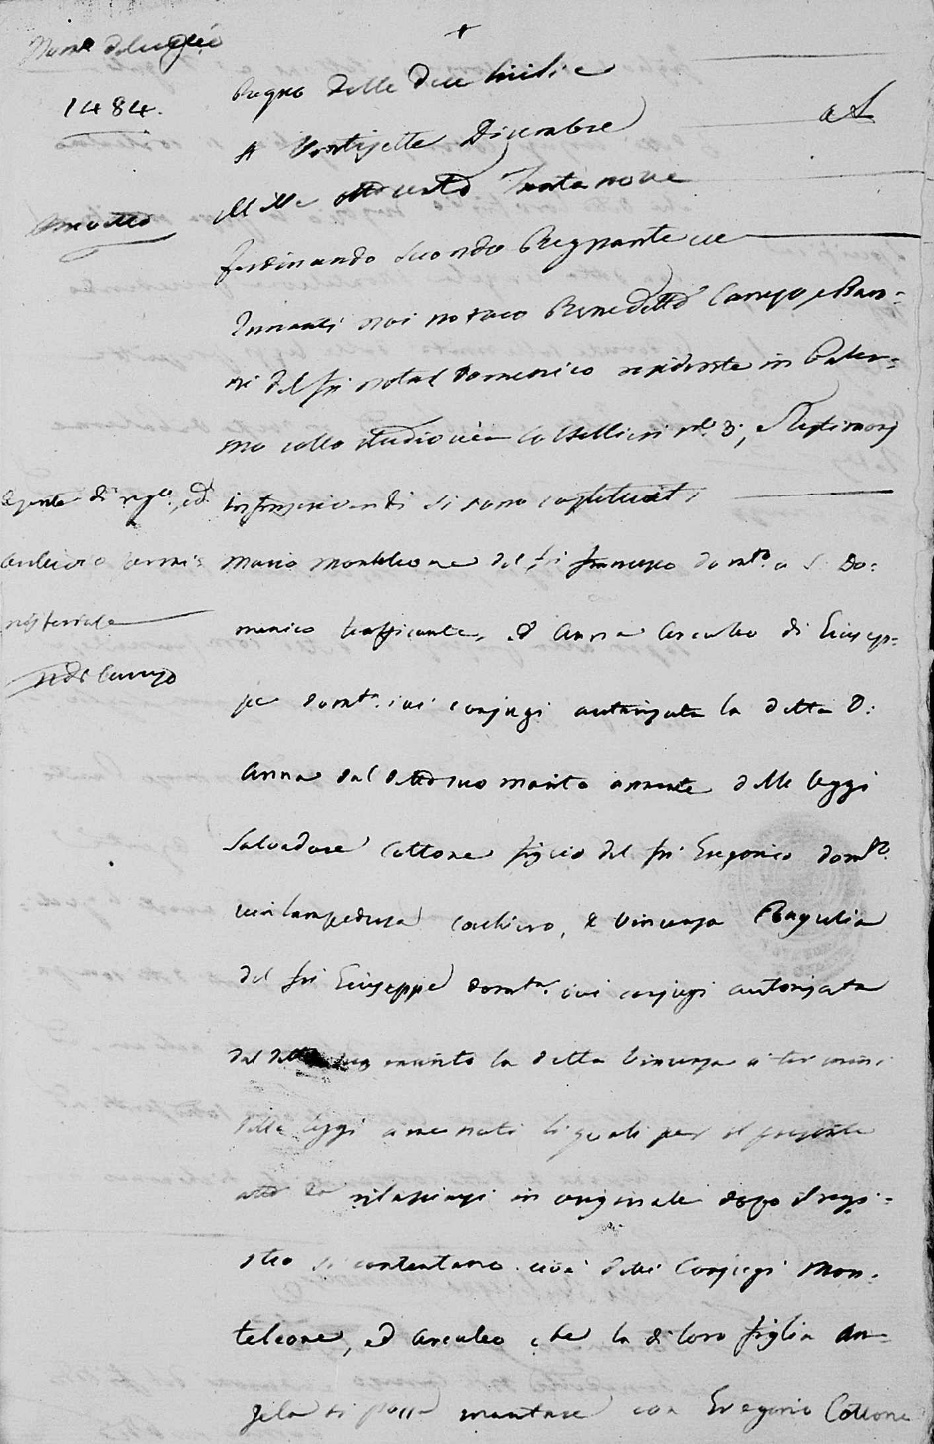 Num.º del reg.º
1484.
Regno delle due Sicilie
A Ventisette Dicembre
Mille ottocento Trentanove
Ferdinando Secondo Regnante
Innanzi noi notaro Benedetto
ni del fu notar Domenico residente in Paler-
mo collo studio via Coltellieri n.º 3, e Testimonj
infrascritti si sono costituiti
Mario Monteleone del fu Francesco dom.to a S. Do:
menico trafficante, ed Anna Arculeo di Giusep-
pe dom.ta ivi conjugi autorizzata la detta D:
Anna dal detto suo marito delle leggi
Salvadore Cottone figlio del fu Gregorio dom.to
via Lampedusa cocchiero, e Vincenza Ragulia
del fu Giuseppe dom.ta ivi conjugi autorizzata
dal detto suo marito la detta Vincenza a termini
delle leggi li quali per il presente
atto da rilasciarsi in originale dopo il regi-
stro si contentano cioè detti Conjugi Mon-
teleone, ed Arculeo che la di loro figlia An-
gela si possa maritare con Gregorio Cottone